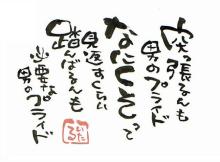 突っ張るんも
男のプライド
なにくそって
見返すくらい
踏んばるんも
必要な
男のプライド